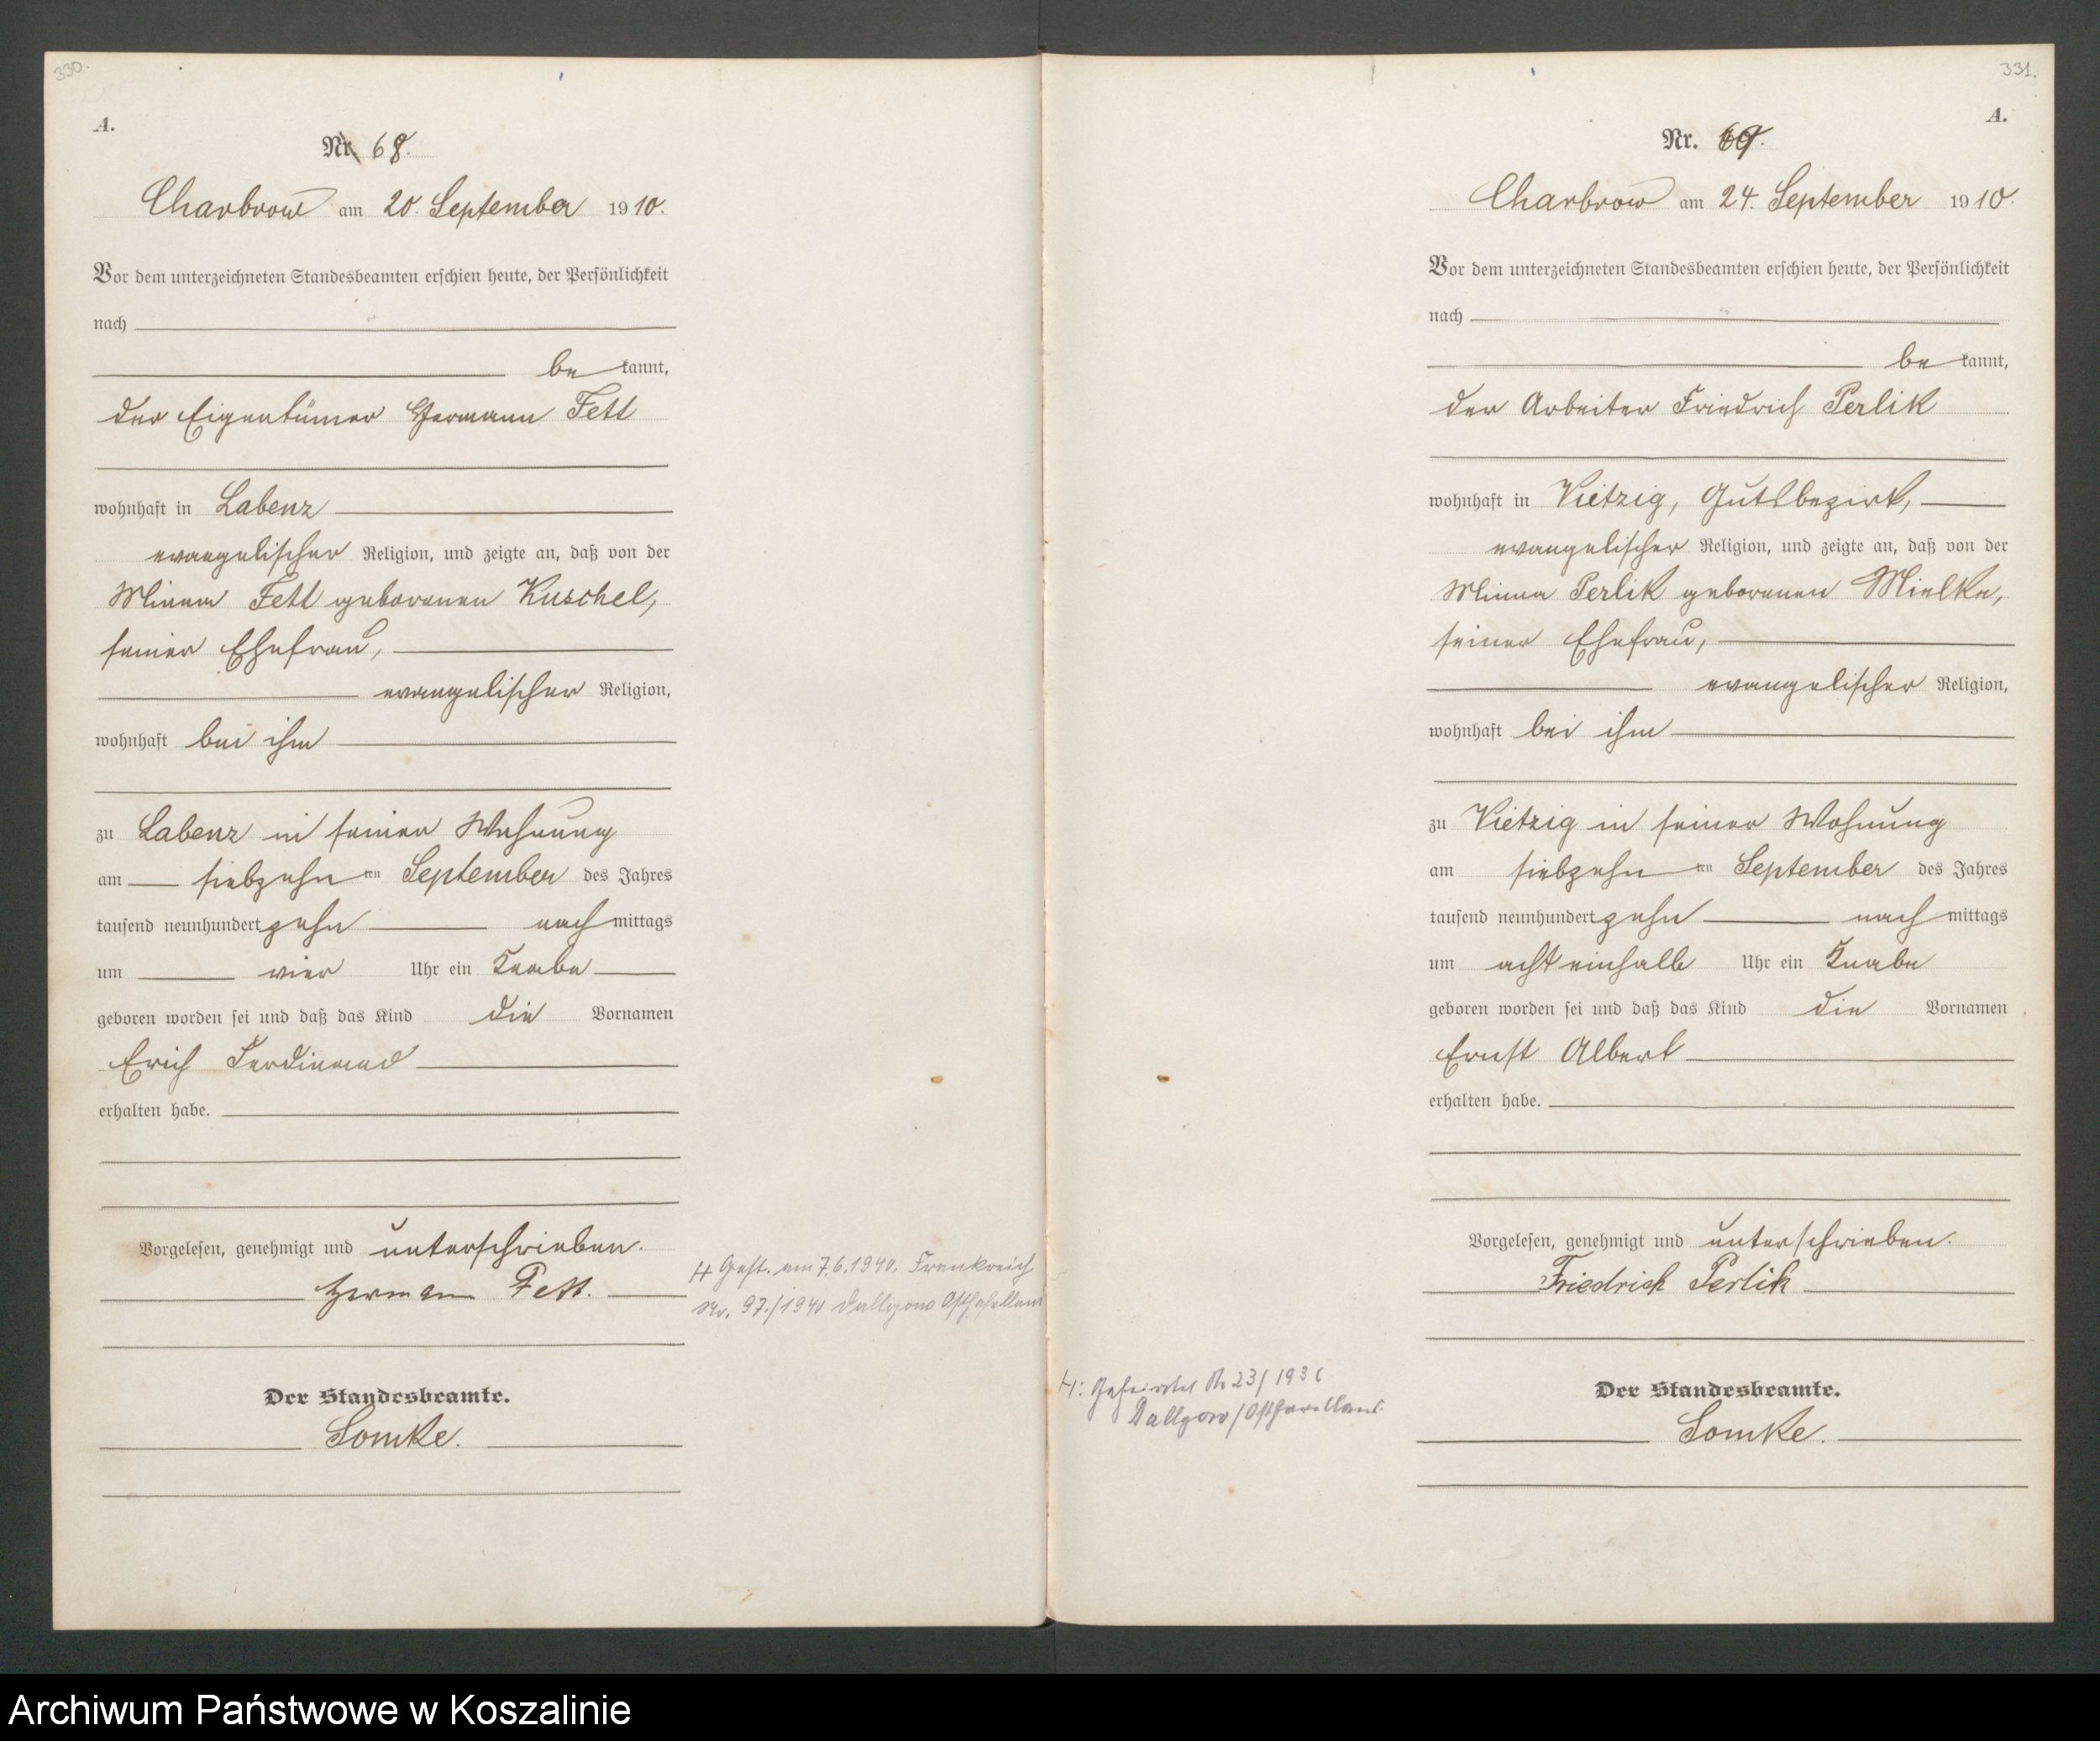 330.
A.
Nr. 68.
Charbrow am 20. September 1910.
Vor dem unterzeichneten Standesbeamten erschien heute, der Persönlichkeit
nach
be kannt,
der Eigentümer Hermann Fett
wohnhaft in Labenz
evangelischer Religion, und zeigte an, daß von der
Minna Fett geborenen Kuschel,
seiner Ehefrau,
evangelischer Religion,
wohnhaft bei ihm
zu Labenz in seiner Wohnung
am siebzehn ten September des Jahres
tausend neunhundert zehn nach mittags
um vier Uhr ein Knabe
geboren worden sei und daß das Kind die Vornamen
Erich Ferdinand
erhalten habe.
Vorgelesen, genehmigt und unterschrieben.
Hermann Fett.
Der Standesbeamte.
Lomke.
Gest. am 7.6.1940. Frankreich
Nr. 97./1940 Dallgow Osthavelland
331.
A.
Nr. 69.
Charbrow am 24. September 1910.
Vor dem unterzeichneten Standesbeamten erschien heute, der Persönlichkeit
nach
be kannt,
der Arbeiter Friedrich Perlik
wohnhaft in Vietzig, Gutsbezirk,
evangelischer Religion, und zeigte an, daß von der
Minna Perlik geborenen Mielke,
seiner Ehefrau,
evangelischer Religion,
wohnhaft bei ihm
zu Vietzig in seiner Wohnung
am siebzehn ten September des Jahres
tausend neunhundert zehn nach mittags
um acht einhalb Uhr ein Knabe
geboren worden sei und daß das Kind die Vornamen
Ernst Albert
erhalten habe.
Vorgelesen, genehmigt und unterschrieben.
Friedrich Perlik
Der Standesbeamte.
Lomke.
H: Geheiratet Nr 23/1936
Dallgow/Osthavelland.
Archiwum Państwowe w Koszalinie